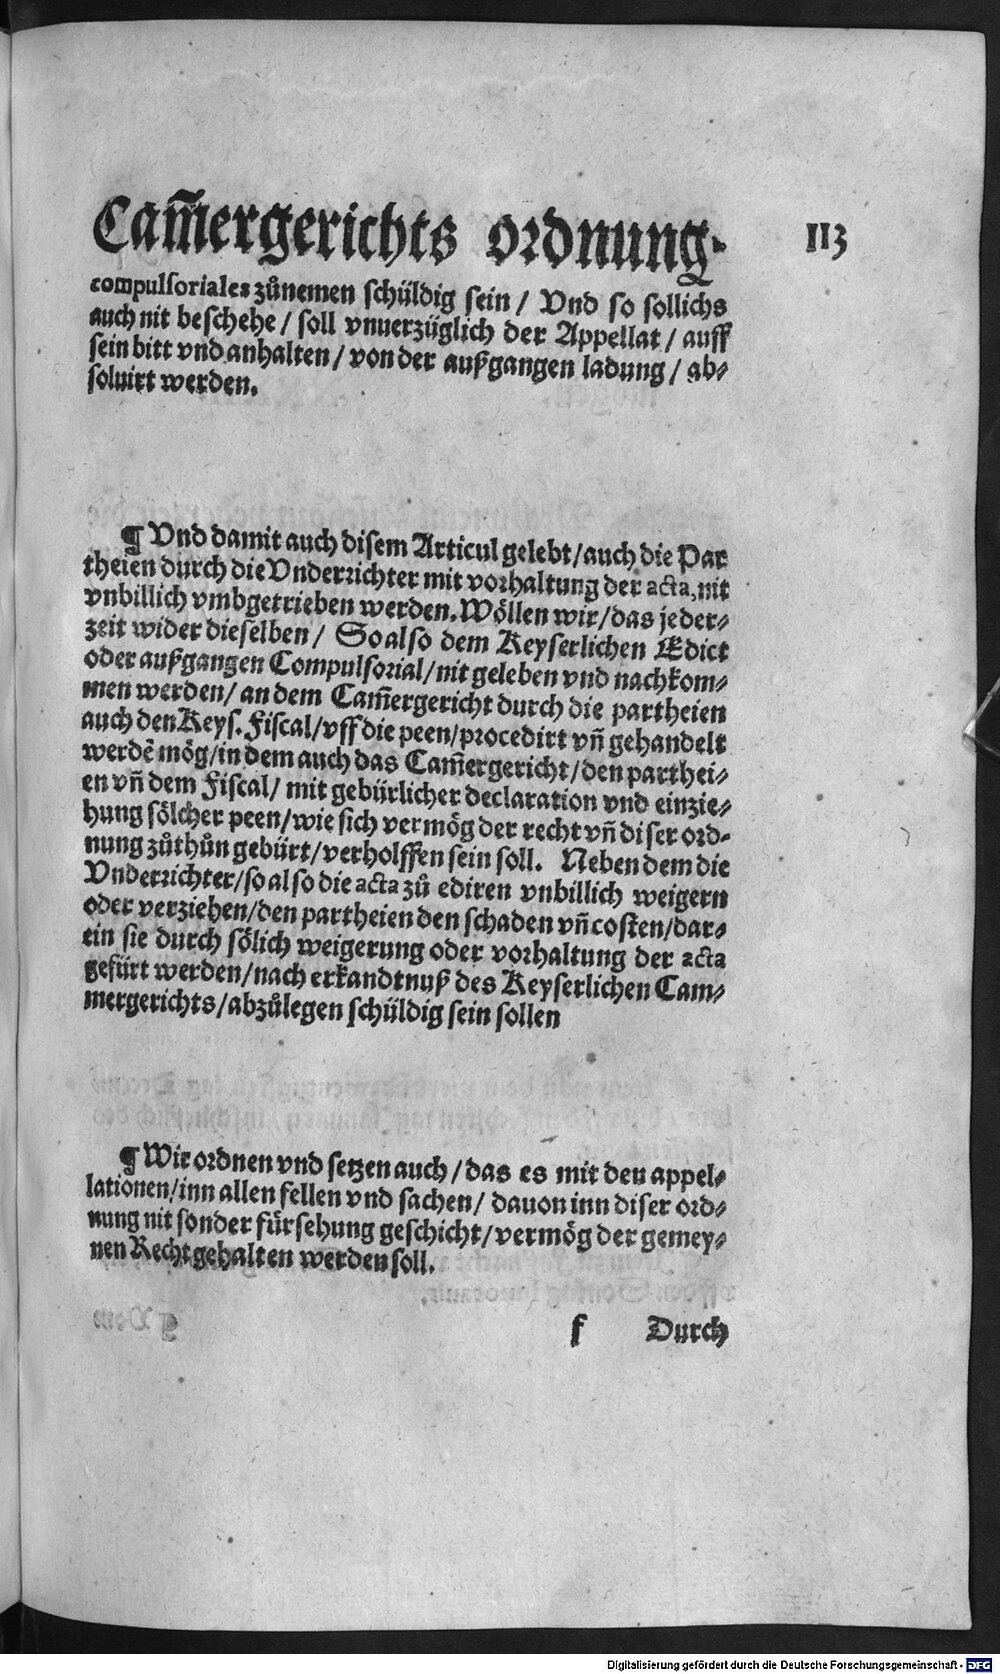 Cam̃ergerichts ordnung. 113
compulsoriales zůnemen schüldig sein / Vnd so sollichs
auch nit beschehe / soll vnuerzüglich der Appellat / auff
sein bitt vnd anhalten / von der außgangen ladung / ab⸗
soluirt werden.
¶ Vnd damit auch disem Articul gelebt / auch die Par
theien durch die Vnderrichter mit vorhaltung der acta, nit
vnbillich vmbgetrieben werden. Wöllen wir / das jeder⸗
zeit wider dieselben / So also dem Keyserlichen Edict
oder außgangen Compulsorial / nit geleben vnd nachkom⸗
men werden / an dem Cam̃ergericht durch die partheien
auch den Keys. Fiscal / vff die peen / procedirt vñ gehandelt
werdẽ mög / in dem auch das Cam̃ergericht / den parthei⸗
en vñ dem Fiscal / mit gebürlicher declaration vnd einzie⸗
hung sölcher peen / wie sich vermög der recht vñ diser ord⸗
nung zůthůn gebürt / verholffen sein soll. Neben dem die
Vnderrichter / so also die acta zů ediren vnbillich weigern
oder verziehen / den partheien den schaden vñ costen / dar⸗
ein sie durch sölich weigerung oder vorhaltung der acta
gefürt werden / nach erkandtnuß des Keyserlichen Cam⸗
mergerichts / abzůlegen schüldig sein sollen
¶ Wir ordnen vnd setzen auch / das es mit den appel⸗
lationen / inn allen fellen vnd sachen / dauon inn diser ord⸗
nung nit sonder fürsehung geschicht / vermög der gemey⸗
nen Recht gehalten werden soll.
f Durch
Digitalisierung gefördert durch die Deutsche Forschungsgemeinschaft - DFG